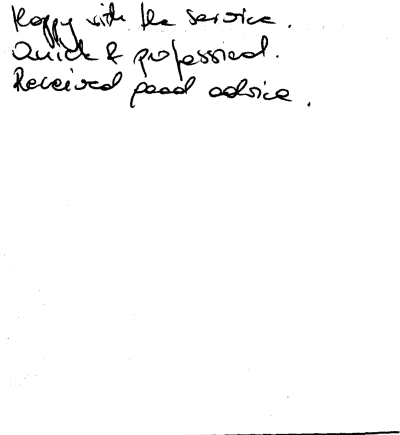 Happy with the service.
Quick & professional.
Received good advice.